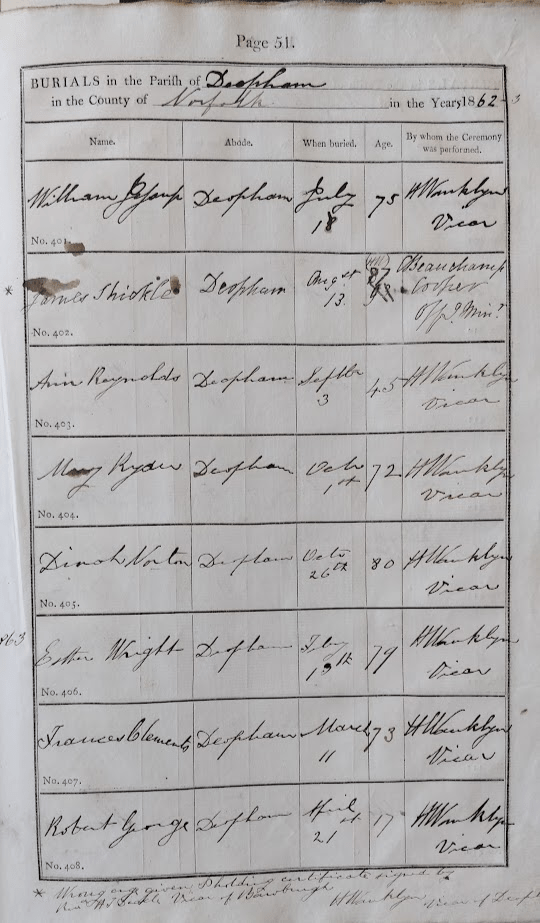 Page 51.
BURIALS in the Parish of Deopham
in the County of Norfolk in the Years 1862-3
Name. Abode. When buried. Age. By whom the Ceremony was performed.
William Jessup Deopham July 18 75 H Wanklyn Vicar
No. 401.
* James Shickle Deopham Augst 13. 87 Beauchamp Cooper Offg Minr
No. 402.
Ann Reynolds Deopham Septbr 3 45 H Wanklyn Vicar
No. 403.
Mary Ryder Deopham Octr 1st 72 H Wanklyn Vicar
No. 404.
Dinah Norton Deopham Octr 26th 80 H Wanklyn Vicar
No. 405.
1863
Esther Wright Deopham Feby 19th 79 H Wanklyn Vicar
No. 406.
Frances Clements Deopham March 11 73 H Wanklyn Vicar
No. 407.
Robert George Deopham April 21st 17 H Wanklyn Vicar
No. 408.
* Wrong age given certificate signed by
Vicar of H Wanklyn Vicar of Deopham